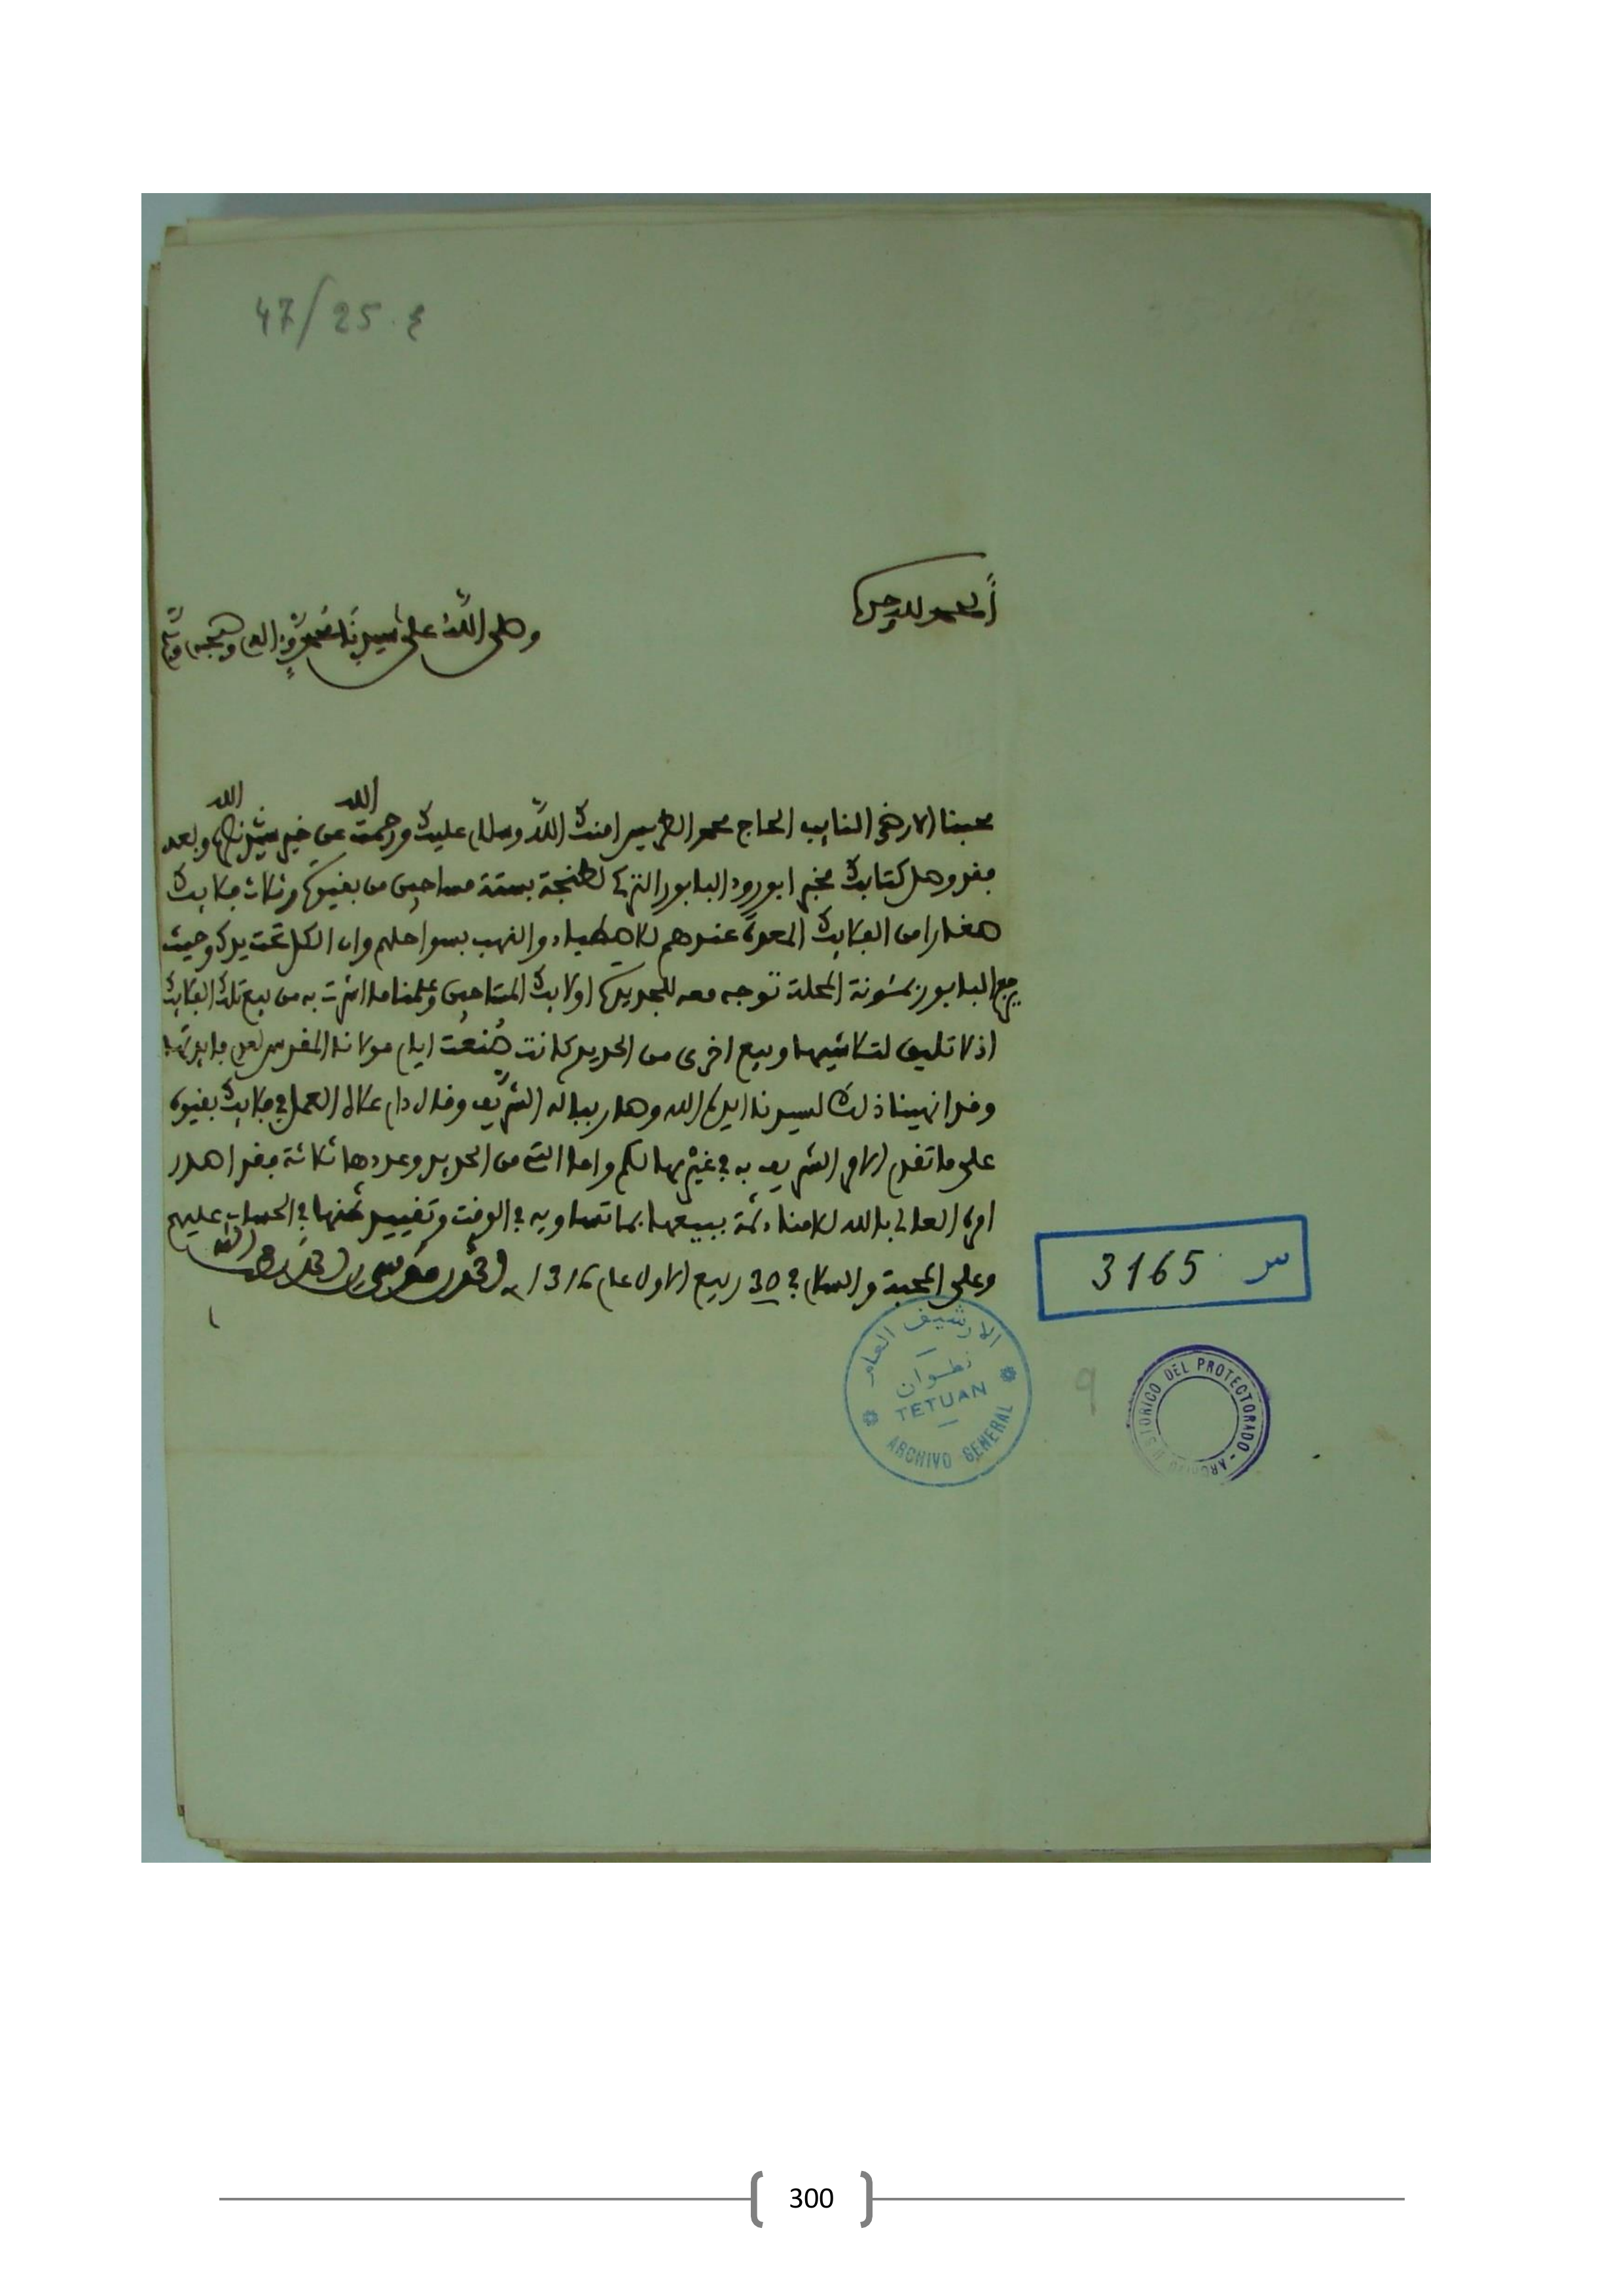 47/25.ع
الحمد لله وحده
وصلى الله على سيدنا محمد وءاله وصحبه وسلم
محبنا الارضى النايب الحاج محمد الطريس امنك الله وسلام عليك ورحمت الله عن خير سيدنا نصره الله وبعد
فقد وصل كتابك مخبرا بورود البابور التركي لطنجة بستة مساجين من بقيوة وثلاث فلايك
صغارا من الفلايك المعدة عندهم للاصطياد والنهب بسواحلهم وان الكل تحت يدك وحيث
يرجع البابور بمئونة المحلة توجه معه للجديدة اولائك المساجين وعلمنا ما اشرت به من بيع تلك الفلايك
اذ لا تليق لتلاشيها وبيع اخرى من الحديد كانت صنعت ايام مولانا المقدس لعدم فايدتها
وقد انهينا ذلك لسيدنا ايده الله وصار بباله الشريف وقال دام علاه العمل في فلايك بقيوة
على ما تقدم الامر الشريف به في غيرها لكم واما التي من الحديد وعددها ثلاثة فقد اصدر
امره العالي بالله لامناء ثمة ببيعها بما تساويه في الوقت وتقييد ثمنها في الحساب عليهم
وعلى المحبة والسلام في 30 ربيع الاول عام 1316 احمد بن موسى بن احمد لطف الله به
س 3165
الارشيف العام
تطوان
TETUAN
ARCHIVO GENERAL
9
DEL PROTECTORADO -
300